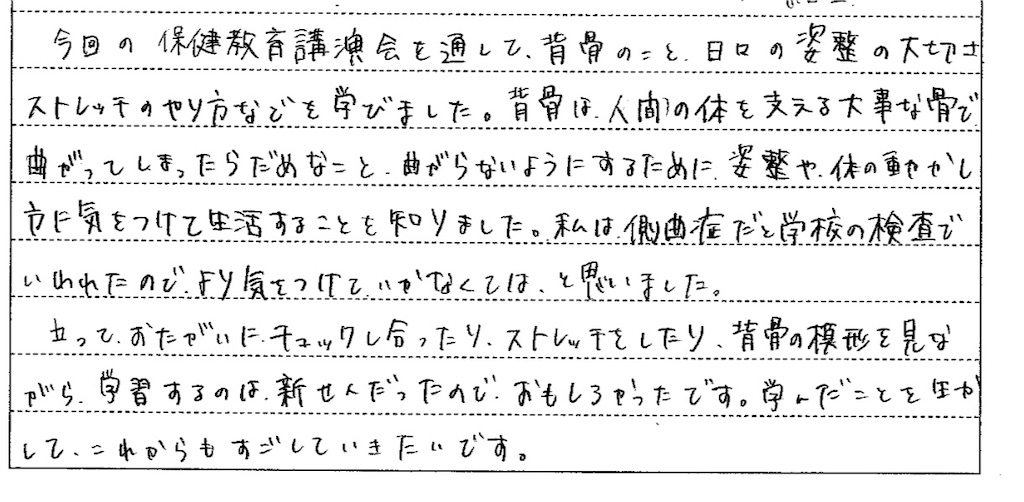 今回の保健教育講演会を通して、背骨のこと、日々の姿整の大切さ
ストレッチのやり方などを学びました。背骨は、人間の体を支える大事な骨で、
曲がってしまったらだめなこと、曲がらないようにするために、姿整や、体の動かし
方に気をつけて生活することを知りました。私は、側曲症だと学校の検査で
いわれたので、より気をつけていかなくては、と思いました。
立って、おたがいに、チェックし合ったり、ストレッチをしたり、背骨の模形を見な
がら、学習するのは、新せんだったので、おもしろかったです。学んだことを生か
して、これからもすごしていきたいです。